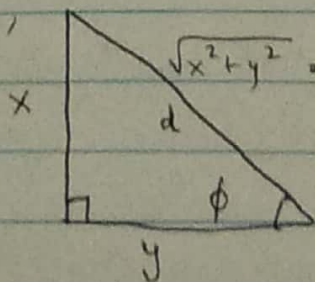 √(x²+y²)
x
d
φ
y